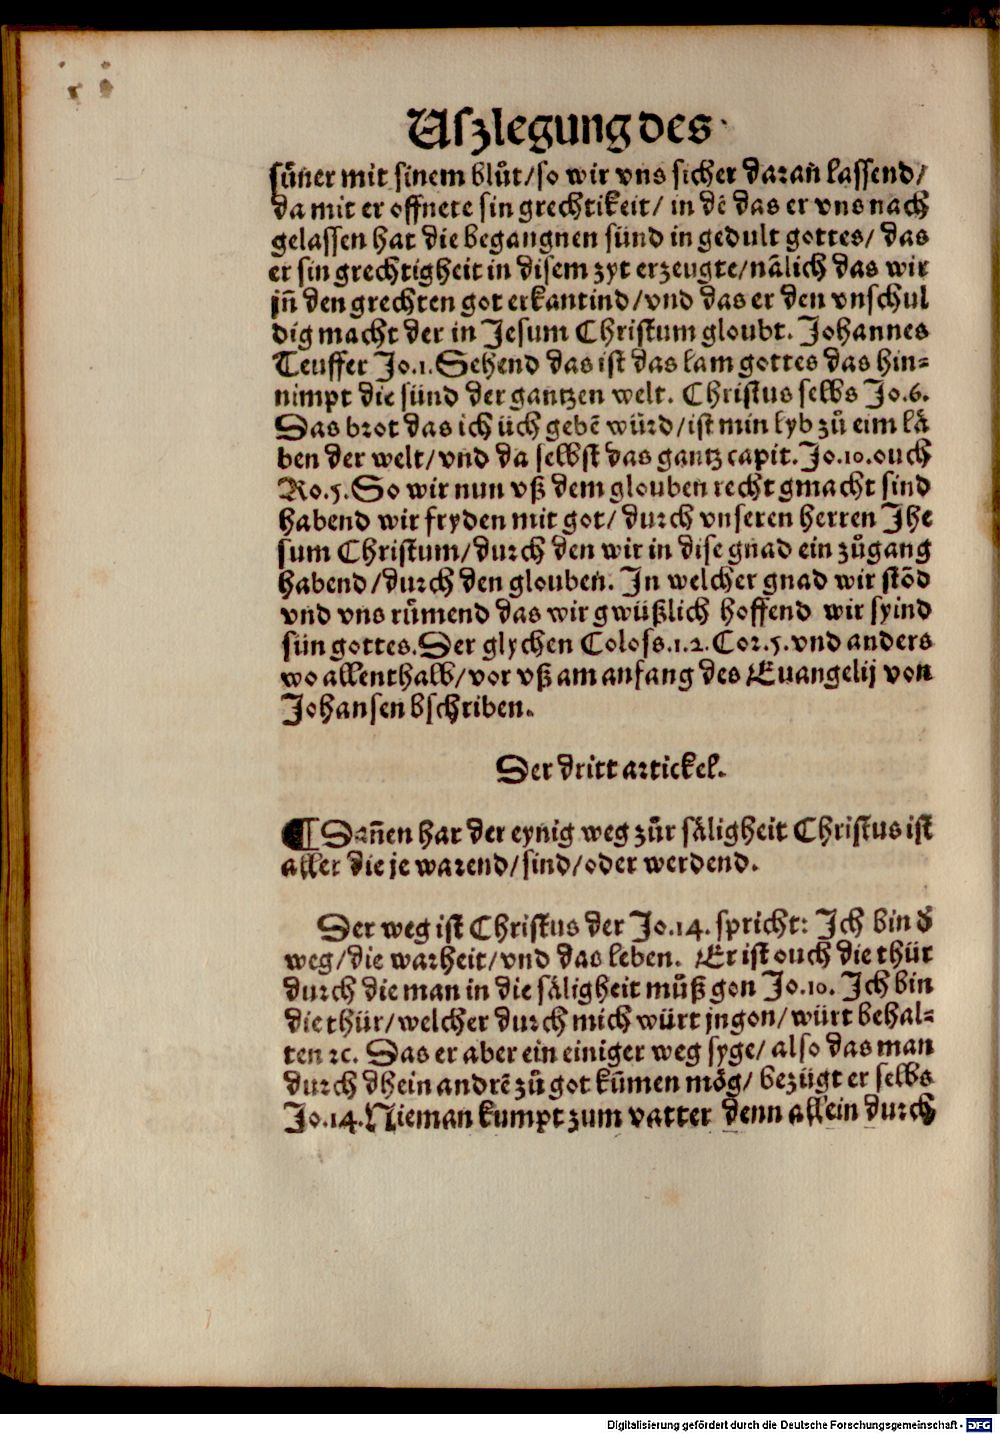 Uſzlegung des
ſuͤner mit ſinem bluͦt/ſo wir vns ſicher daran̄ laſſend/
da mit er offnete ſin grechtikeit/ in dē das er vns nach
gelaſſen hat die begangnen ſünd in gedult gottes/ das
er ſin grechtigheit in diſem zyt erzeugte/nālich das wir
jn̄ den grechten got erkantind/vnd das er den vnſchul
dig macht der in Jeſum Chriſtum gloubt. Johannes
Teuffer Jo.1. Sehend das iſt das lam gottes das hin⸗
nimpt die ſünd der gantzen welt. Chriſtus ſelbs Jo.6.
Das brot das ich üch gebē würd/iſt min lyb zuͦ eim laͤ
ben der welt/vnd da ſelbſt das gantz capit. Jo.10.ouch
Ro.5. So wir nun vß dem glouben recht gmacht ſind
habend wir fryden mit got/ durch vnſeren herren Jhe
ſum Chriſtum/durch den wir in diſe gnad ein zuͦgang
habend/durch den glouben. In welcher gnad wir ſtōd
vnd vns ruͤmend das wir gwüßlich hoffend wir ſyind
ſün gottes. Der glychen Coloſs.1.2.Cor.5.vnd anders
wo allenthalb/vor vß am anfang des Euangelij von
Johanſen bſchriben.
Der dritt artickel.
¶ Dan̄en har der eynig weg zuͦr ſaͤligheit Chriſtus iſt
aller die je warend/ſind/oder werdend.
Der weg iſt Chriſtus der Jo.14. ſpricht: Ich bin d̄
weg/die warheit/vnd das leben. Er iſt ouch die thür
durch die man in die ſaͤligheit muͦß gon Jo.10. Ich bin
die thür/welcher durch mich würt jngon/würt behal⸗
ten ꝛc. Das er aber ein einiger weg ſyge/ alſo das man
durch dhein andrē zuͦ got kum̄en moͤg/ bezügt er ſelbs
Jo.14. Nieman kumpt zum vatter denn allein durch
Digitalisierung gefördert durch die Deutsche Forschungsgemeinschaft - DFG